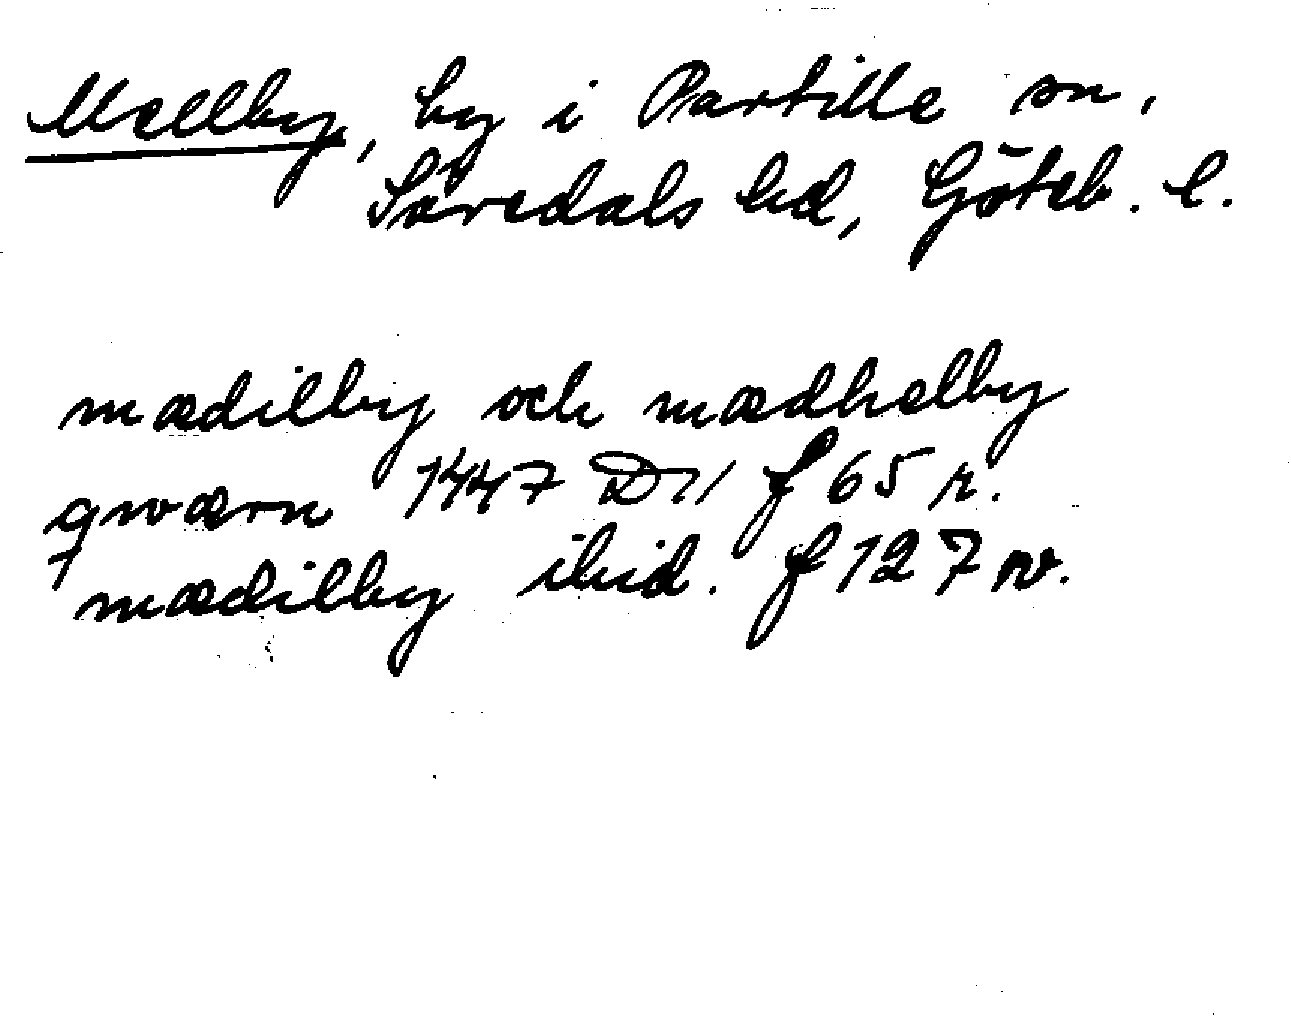 Mellby, by i Partille sn,
Sävedals hd, Göteb. l.
mædilby och mædhelby
qwærn 1447 D 11 f 65 r.
mædilby ibid. f 127 v.